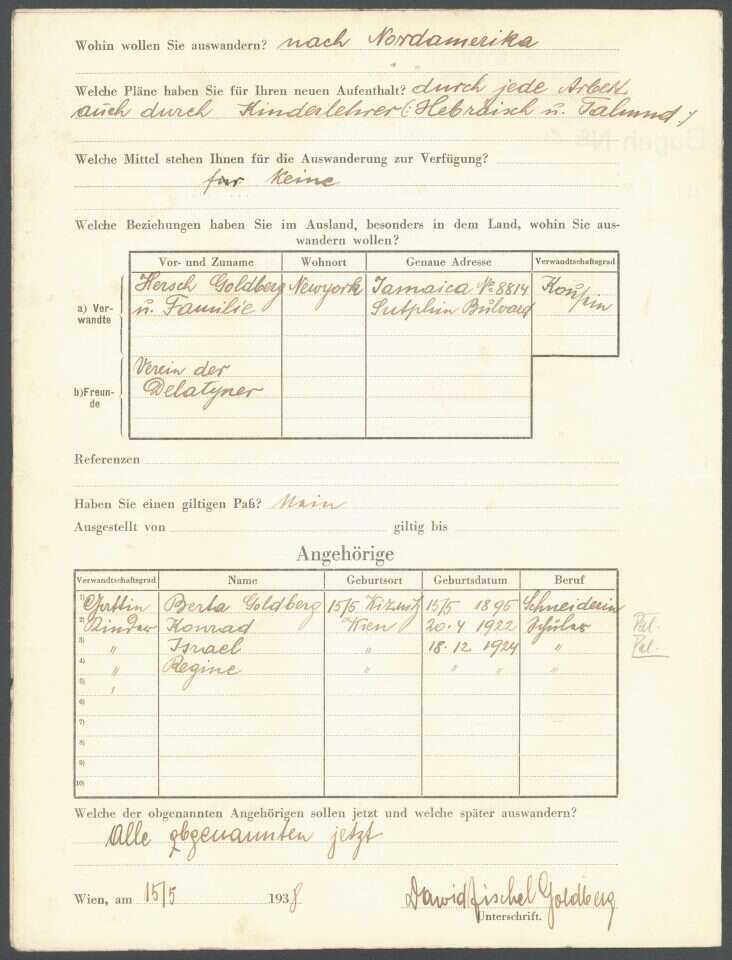 Wohin wollen Sie auswandern? nach Nordamerika
Welche Pläne haben Sie für Ihren neuen Aufenthalt? durch jede Arbeit
auch durch Kinderlehrer (: Hebräisch u. Talmud :)
Welche Mittel stehen Ihnen für die Auswanderung zur Verfügung?
Keine
Welche Beziehungen haben Sie im Ausland, besonders in dem Land, wohin Sie aus-
wandern wollen?
Vor- und Zuname Wohnort Genaue Adresse Verwandtschaftsgrad
a) Ver-
wandte
Hersch Goldberg Newyork Jamaica No 8814 Kousin
u. Familie Sutphin Bulvard
b) Freun-
de
Verein der
Delatyner
Referenzen
Haben Sie einen giltigen Paß? Nein
Ausgestellt von giltig bis
Angehörige
Verwandtschaftsgrad Name Geburtsort Geburtsdatum Beruf
1) Gattin Berta Goldberg 15/5 Wiznitz 15/5 1896 Schneiderin
2) Kinder Konrad Wien 20.4 1922 Schüler Pal.
3) " Israel " 18.12 1924 " Pal.
4) " Regine " " " "
5)
6)
7)
8)
9)
10)
Welche der obgenannten Angehörigen sollen jetzt und welche später auswandern?
Alle obgenannten jetzt
Wien, am 15/5 1938 Dawid Fischel Goldberg
Unterschrift.